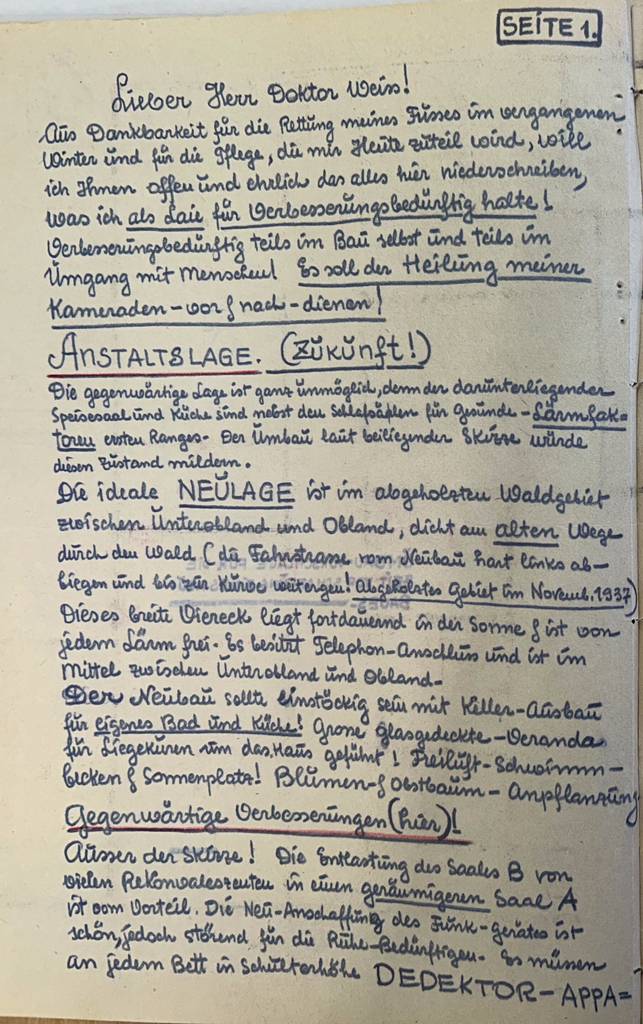 SEITE 1.
Lieber Herr Doktor Weiss!
Aus Dankbarkeit für die Rettung meines Fusses im vergangenen
Winter und für die Pflege, die mir Heute zuteil wird, will
ich Ihnen offen und ehrlich das alles hier niederschreiben,
was ich als Laie für Verbesserungsbedürftig halte!
Verbesserungsbedürftig teils im Bau selbst und teils im
Umgang mit Menschen! Es soll der Heilung meiner
Kameraden-vor & nach-dienen!
ANSTALTSLAGE. (Zukunft!)
Die gegenwärtige Lage ist ganz unmöglich, denn der darunterliegender
Speisesaal und Küche sind nebst den Schlafsälen für Gesunde-Lärmfak=
toren ersten Ranges. Der Umbau laut beiliegender Skizze würde
diesen Zustand mildern.
Die ideale NEULAGE ist im abgeholzten Waldgebiet
zwischen Unterobland und Obland, dicht am alten Wege
durch den Wald (die Fahrstrasse vom Neubau hart links ab-
biegen und bis zur Kurve weitergen! Abgeholztes Gebiet im Novemb. 1937)
Dieses breite Viereck liegt fortdauernd in der Sonne & ist von
jedem Lärm frei. Es besitzt Telephon-Anschluss und ist im
Mittel zwischen Unterobland und Obland.
Der Neubau sollte einstöckig sein mit Keller-Ausbau
für eigenes Bad und Küche! Grosse glasgedeckte-Veranda
für Liegekuren um das Haus geführt! Freiluft-Schwimm-
becken & Sonnenplatz! Blumen-& Obstbaum-Anpflanzung
Gegenwärtige Verbesserungen (hier)!
Ausser der Skizze! Die Entlastung des Saales B von
vielen Rekonvaleszenten in einen geräumigeren Saal A
ist vom Vorteil. Die Neu-Anschaffung des Funk-gerätes ist
schön, jedoch störend für die Ruhe-Bedürftigen. Es müssen
an jedem Bett in Schulterhöhe DEDEKTOR-APPA=